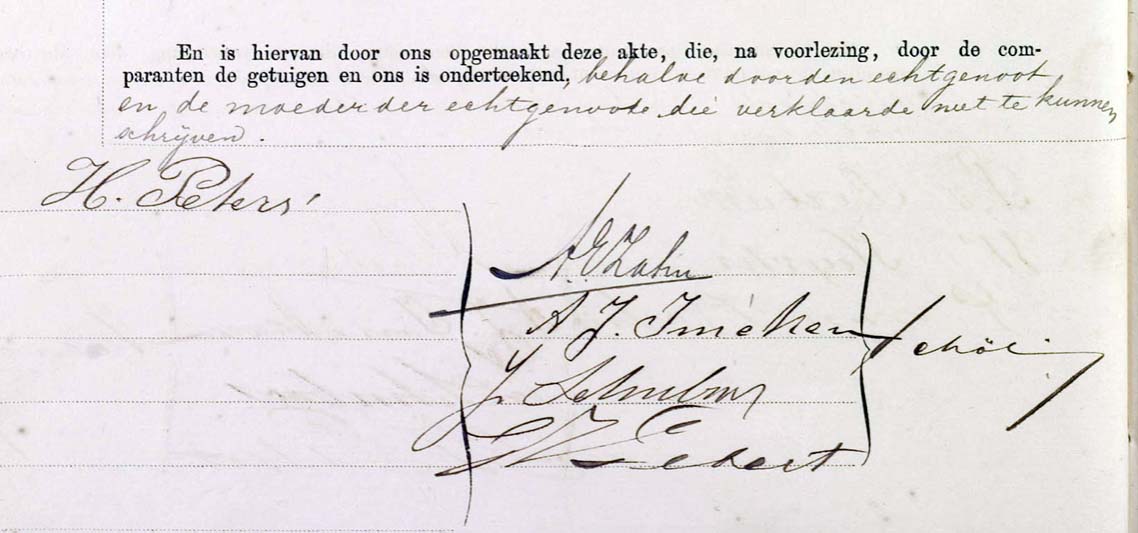 En is hiervan door ons opgemaakt deze akte, die, na voorlezing, door de com-
paranten de getuigen en ons is ondertcekend, behalve door den echtgenoot
en de moeder der echtgenoote die verklaarde niet te kunnen
schrijven.
H. Peters
A. E. Zahn
A. J.
J.